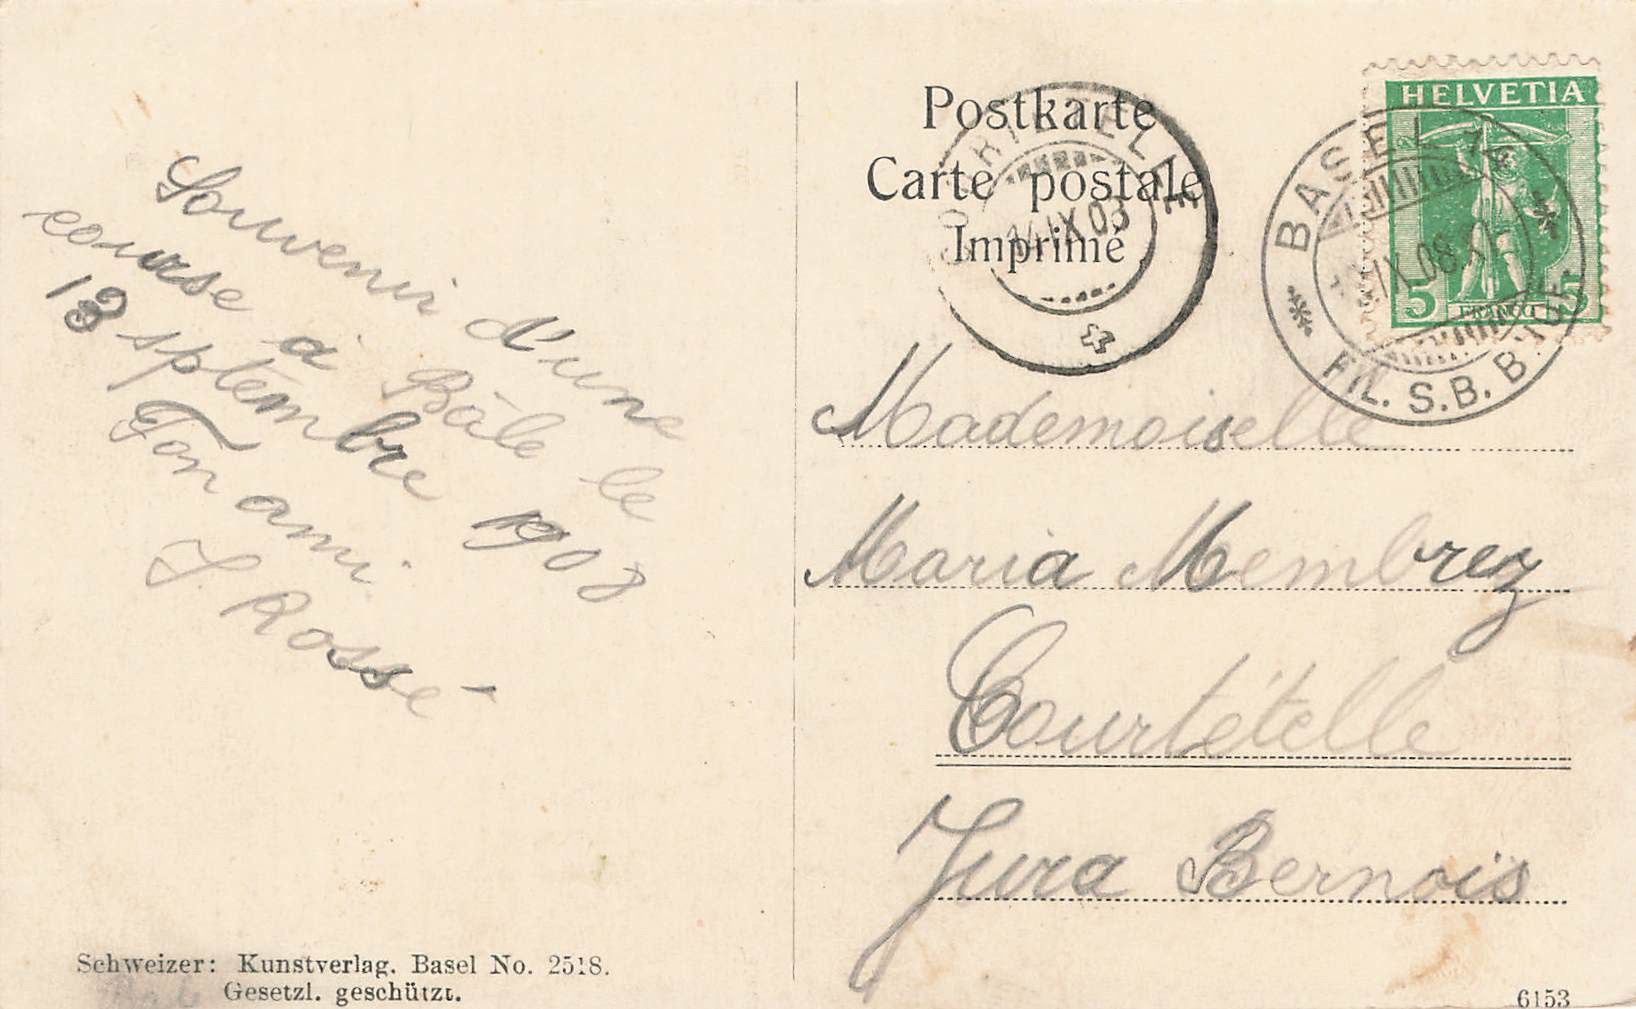 Souvenir d'une
course à Bâle le
13 sptembre 1908
Ton ami
J. Rossé
Schweizer: Kunstverlag. Basel No. 2518.
Gesetzl. geschützt.
Postkarte
Carte postale
Imprimé
HELVETIA
5 FRANCO 5
BASEL
FIL. S.B.B.
IX.08
COURTETELLE
14 IX 08
Mademoiselle
Maria Membrez
Courtételle
Jura Bernois
6153